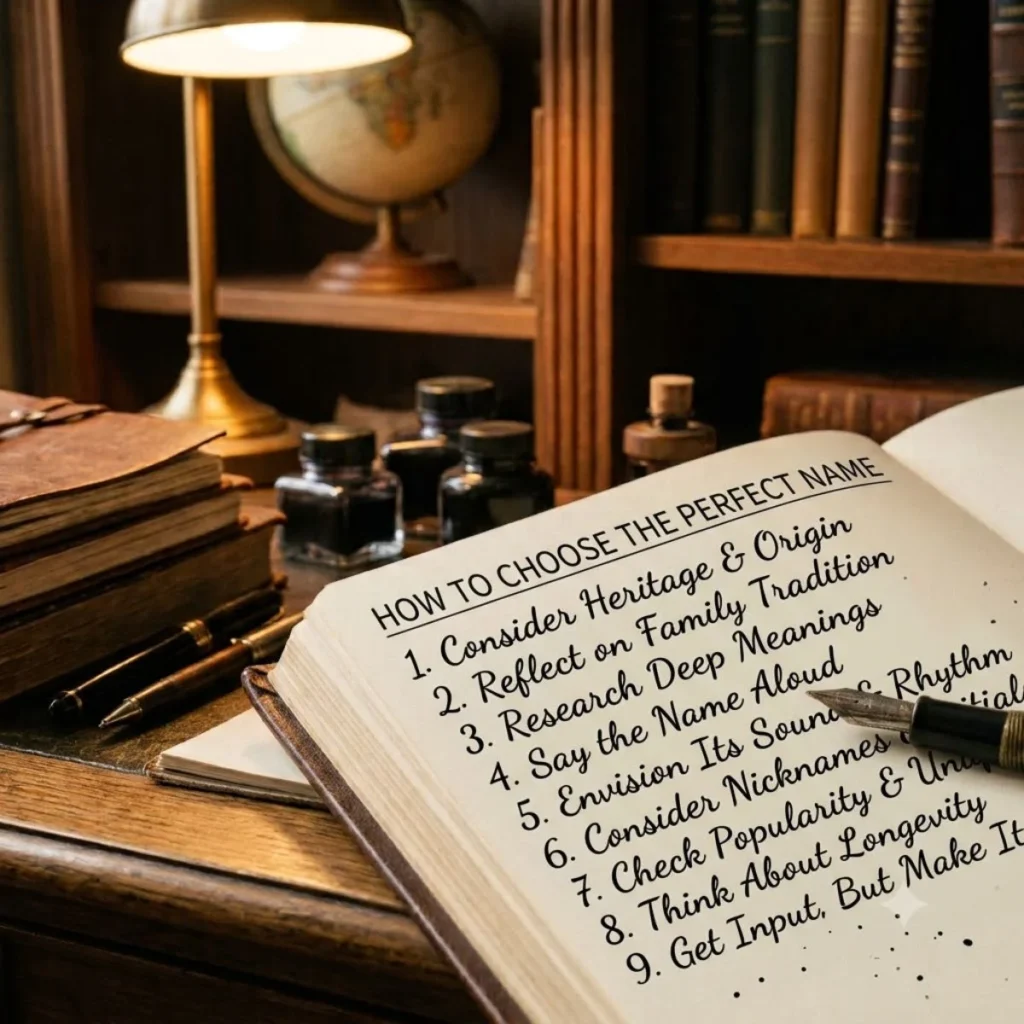 HOW TO CHOOSE THE PERFECT NAME
1. Consider Heritage & Origin
2. Reflect on Family Tradition
3. Research Deep Meanings
4. Say the Name Aloud
5. Envision Its Sound & Rhythm
6. Consider Nicknames
7. Check Popularity &
8. Think About Longevity
9. Get Input, But Make It